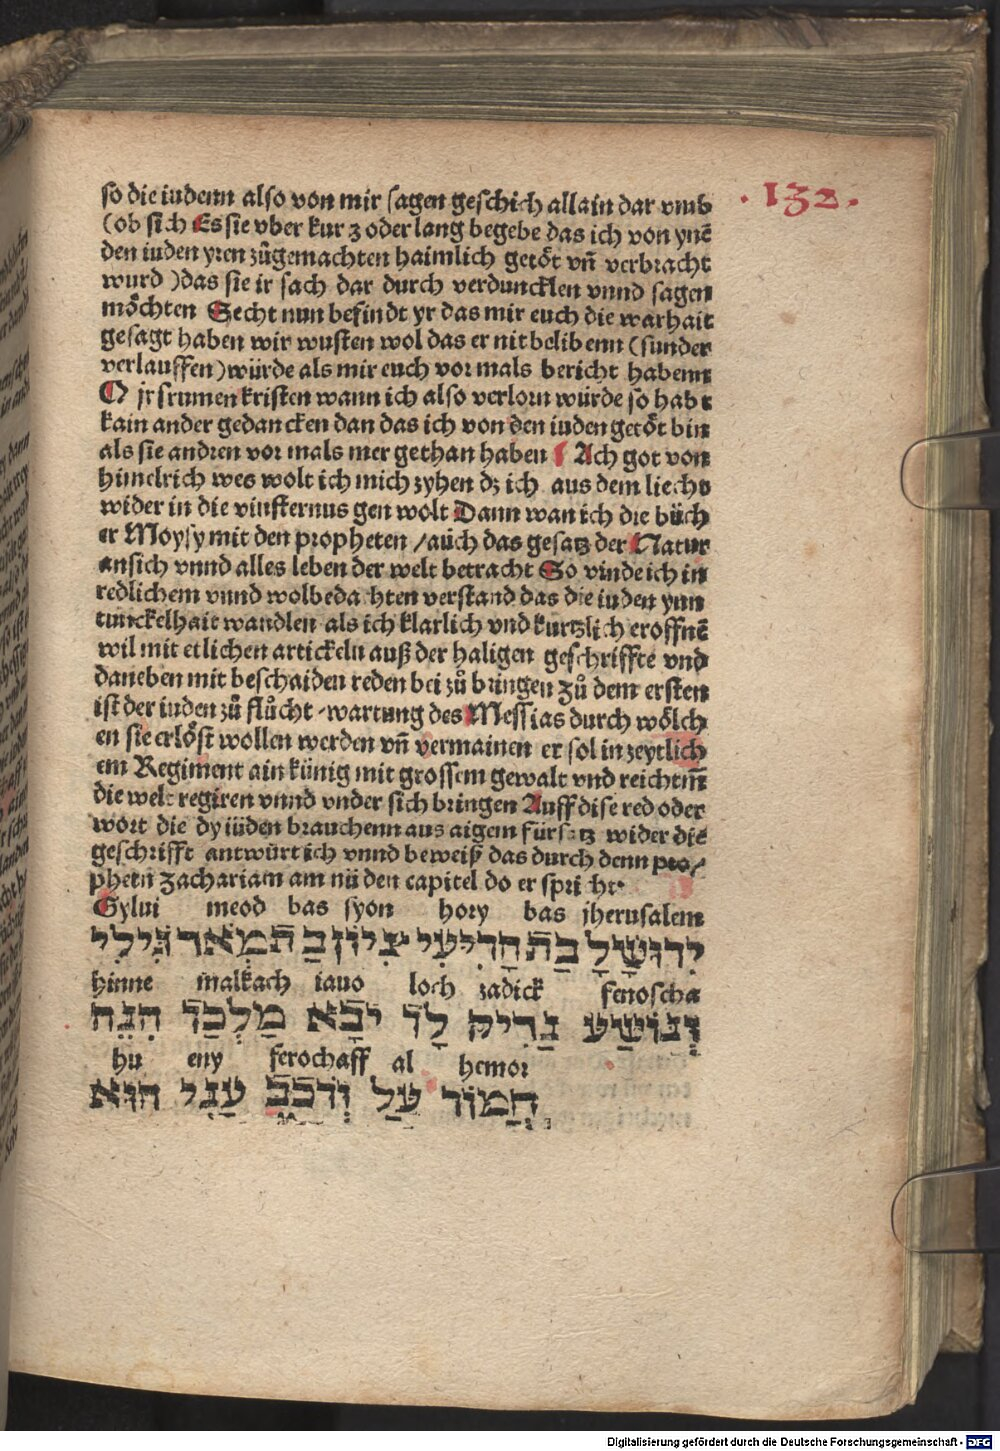 . 132 .
so die iudenn also von mir sagen geschich allain dar vmb
(ob sich Es sie vber kurz oder lang begebe das ich von ynē
den iuden yren zůgemachten haimlich getöt vñ verbracht
wurd )das sie ir sach dar durch verduncklen vnnd sagen
möchten Secht nun befindt yr das mir euch die warhait
gesagt haben wir wusten wol das er nit belibenn (sunder
verlauffen)würde als mir euch vor mals bericht habenn
O jr frumen kristen wann ich also verlorn würde so habt
kain ander gedancken dan das ich von den iuden getöt bin
als sie andren vor mals mer gethan haben ¶ Ach got von
himelrich wes wolt ich mich zyhen dz ich aus dem liecht
wider in die vinsternus gen wolt Dann wan ich die büch
er Moysy mit den propheten /aüch das gesatz der Natur
ansich vnnd alles leben der welt betracht So vinde ich in
redlichem vnnd wolbedachten verstand das die iuden ynn
tunckelhait wandlen als ich klarlich vnd kurtzlich eroffnē
wil mit etlichen artickeln auß der haligen geschriffte vnd
daneben mit beschaiden reden bei zů bringen Zů dem ersten
ist der iuden zů flůcht wartung des Messias durch wölch
en sie erlöst wollen werden vñ vermainen er sol in zeytlich
em Regiment ain künig mit grossem gewalt vnd reichtm̄
die welt regiren vnnd vnder sich bringen Auff dise red oder
wort die dy iüden brauchenn aus aigem fürsatz wider die
geschrifft antwürt ich vnnd beweiß das durch denn pro/
phetn Zachariam am nünden capitel do er spricht·
Gylui meod bas syon hory bas jherusalem
גִילִי מְאֹר בַּת צִיוֹן הָרִיעִי בַּת יְרוּשָׁלָ
hinne malkach iauo loch zadick fenoscha
הִנֵה מַלְכֵךְ יָבֹא לָךְ צַדִיק וְנוֹשַׁע
hu eny ferochaff al hemor
הוּא עָנִי וְרֹכֵב עַל חֲמוֹר
Digitalisierung gefördert durch die Deutsche Forschungsgemeinschaft - DFG